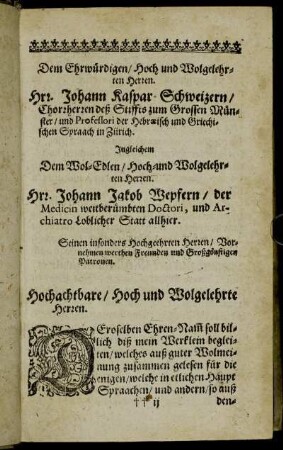 Dem Ehrwürdigen/ Hoch und Wolgelehr-
ten Herren.
Hrn. Johann Kaspar Schweizern/
Chorherren deß Stiffts zum Grossen Mün-
ster/ und Professori der Hebræisch und Griechi-
schen Spraach in Zürich.
Ingleichem
Dem Wol-Edlen/ Hoch und Wolgelehr-
ten Herren.
Hrn. Johann Jakob Wepfern/ der
Medicin weitberümbten Doctori, und Ar-
chiatro Loblicher Statt allhier.
Seinen insonders Hochgeehrten Herren/ Vor-
nehmen werthen Freunden und Großgünstigen
Patronen.
Hochachtbare/ Hoch und Wolgelehrte
Herren.
Deroselben Ehren-Nam̃ soll bil-
lich diß mein Werklein beglei-
ten/ welches auß guter Wolmei-
nung zusammen gelesen für die
jenigen/ welche in etlichen Haupt
Spraachen/ und andern/ so auß
†† ij
den-